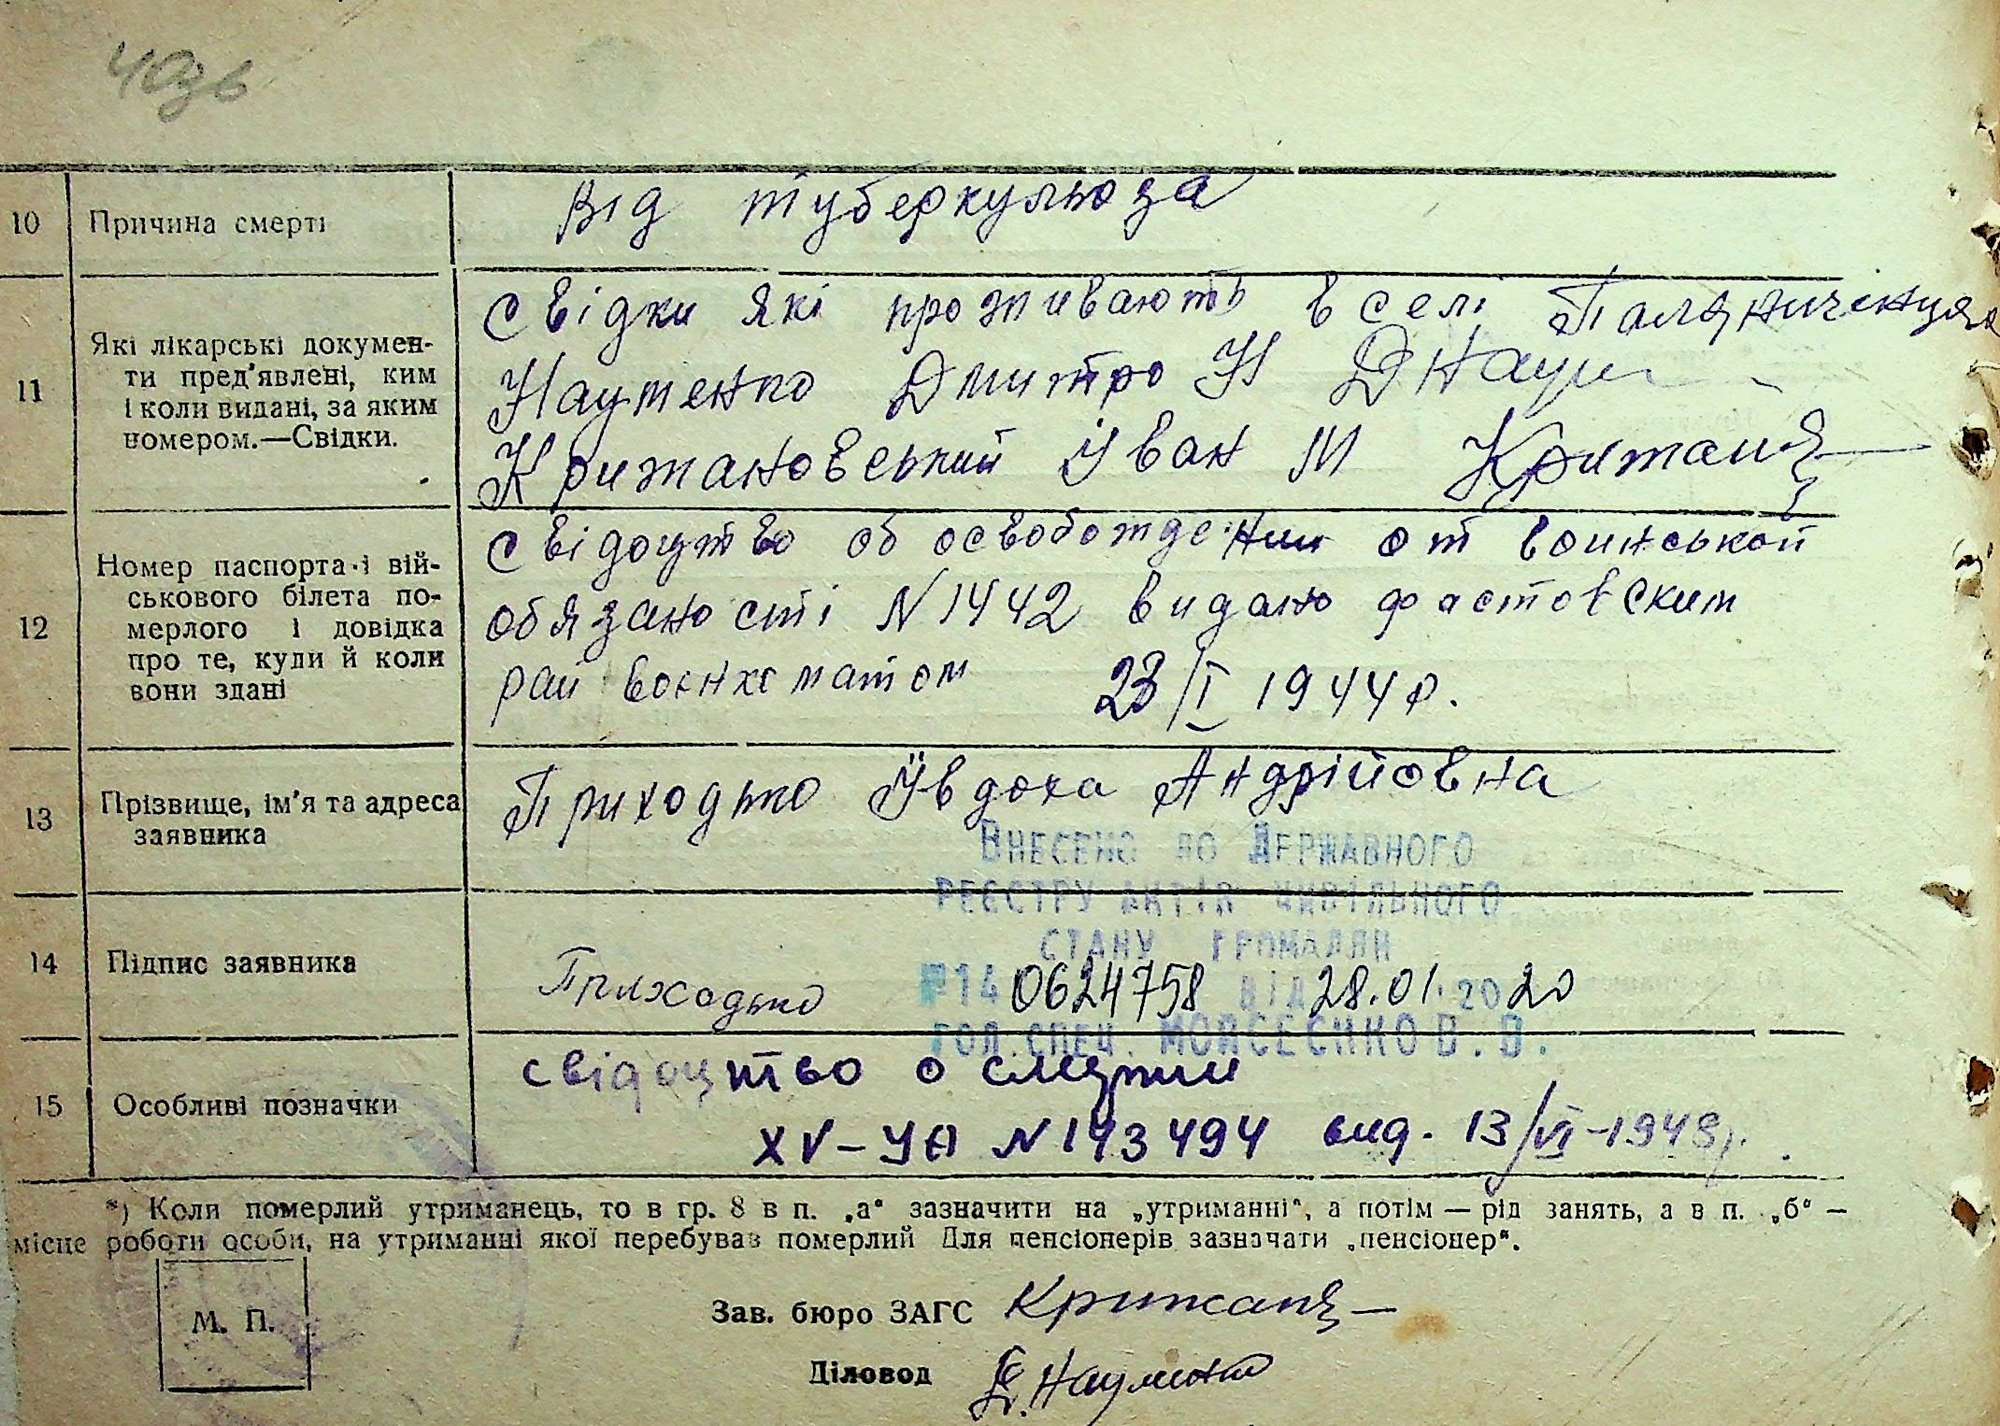 10 Причина смерті
Від туберкульоза
11 Які лікарські докумен-
ти пред'явлені, ким
і коли видані, за яким
номером.—Свідки.
Свідки які проживають в селі Паляничинцях
Науменко Дмитро Н ДНаум
Крижановський Іван М Крижан
12 Номер паспорта і вій-
ськового білета по-
мерлого і довідка
про те, куди й коли
вони здані
Свідоцтво об освобождении от воинськой
обязаности N 1442 видано фастовским
рай военкоматом 23/I 1944 р.
13 Прізвище, ім'я та адреса
заявника
Приходько Ївдоха Андрійовна
Внесено до Державного
реєстру актів цивільного
стану громадян
№14 0624758 від 28.01.2020
Гол. спец. Мойсеєнко В. В.
14 Підпис заявника
Приходько
15 Особливі позначки
свідоцтво о смерти
XV-УА N 143494 вид. 13/VI-1948р.
*) Коли померлий утриманець, то в гр. 8 в п. „а“ зазначити на „утриманні“, а потім — рід занять, а в п. „б“ —
місце роботи особи, на утриманні якої перебував померлий Для пенсіонерів зазначати „пенсіонер“.
М. П.
Зав. бюро ЗАГС Крижан
Діловод Д. Науменко